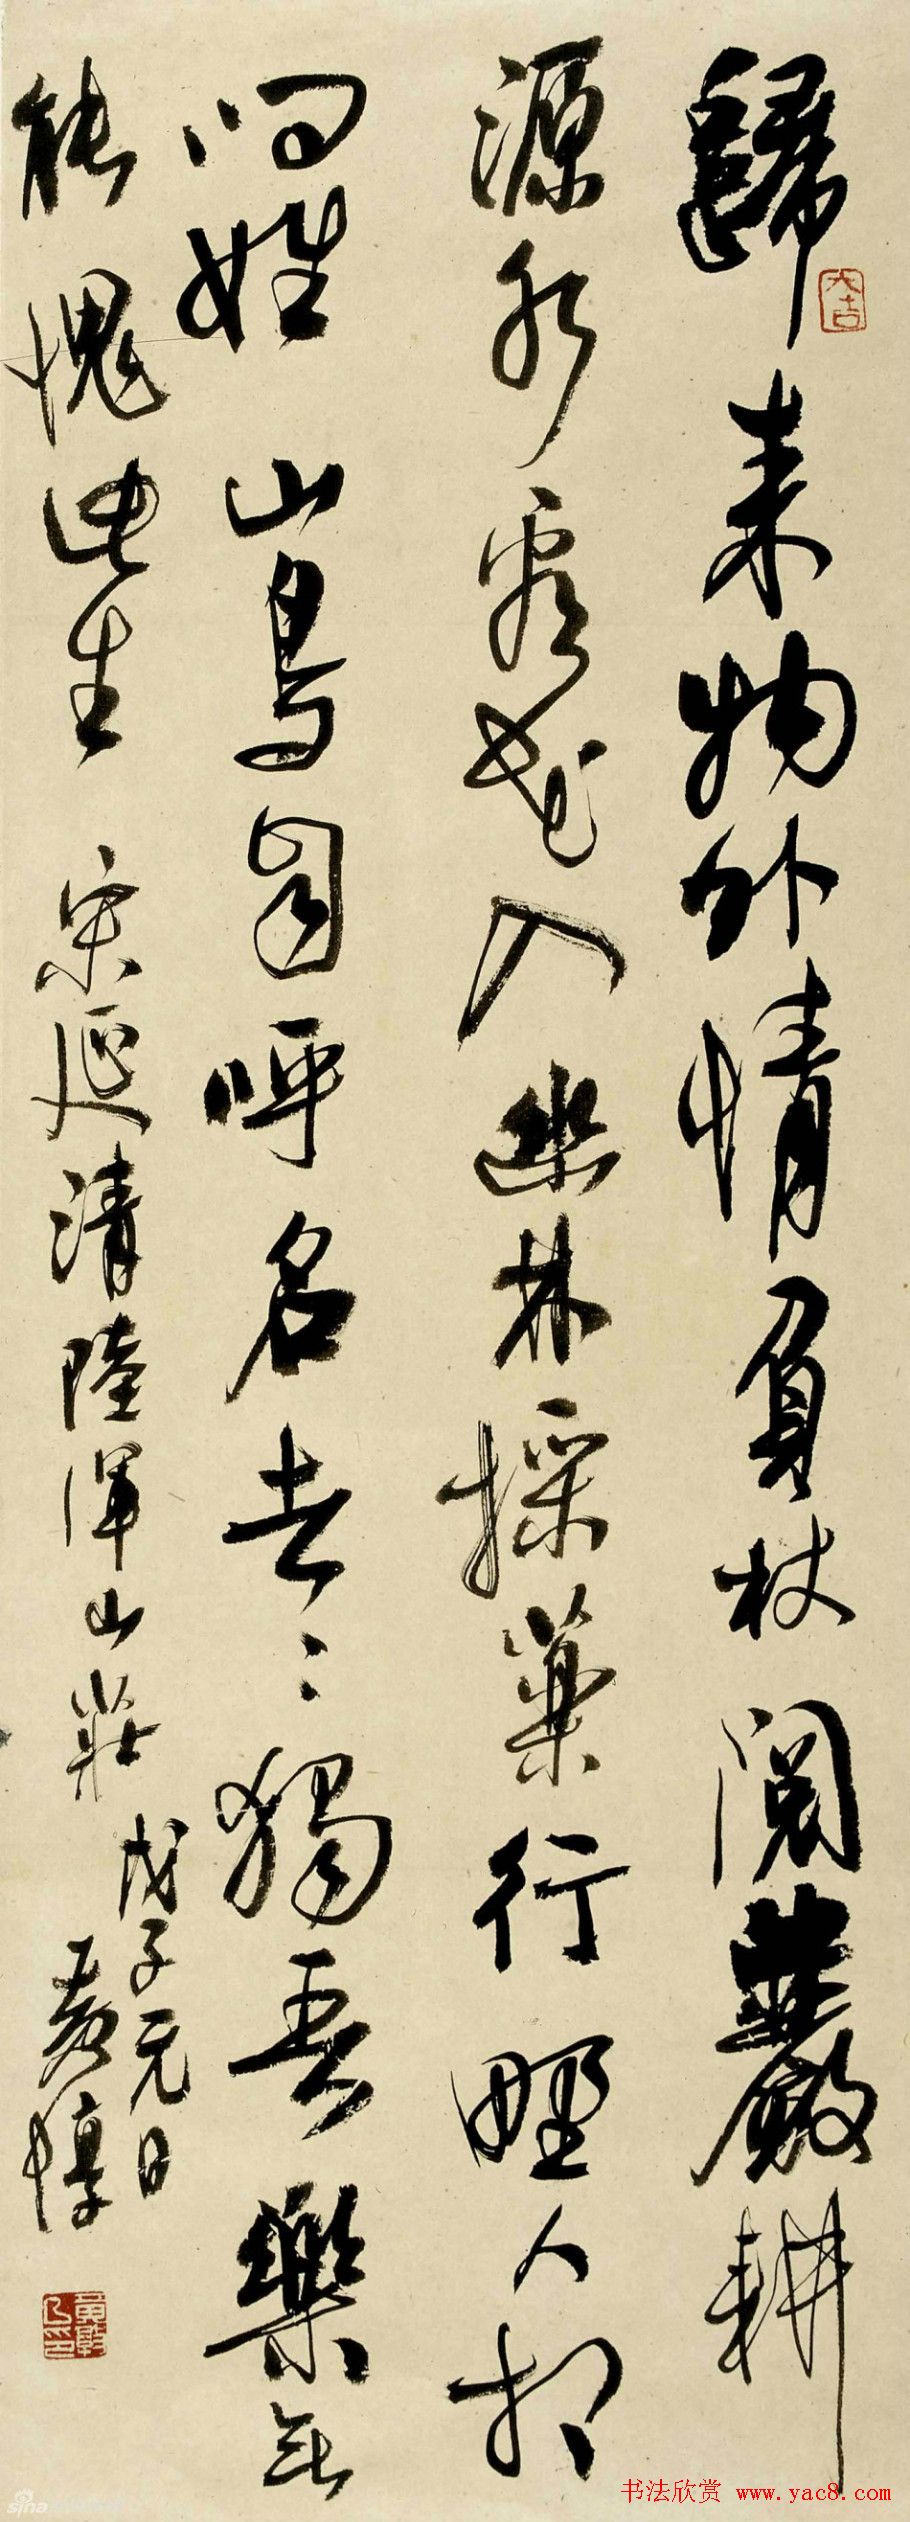 歸来物外情負杖閱巖耕
源水看花入幽林採藥行野人相
问姓山鳥自呼名去〻獨吾樂无
能愧此生 宋延清陸渾山莊
戊子元日
黃惇
大吉
黃惇之印
书法欣赏 www.yac8.com
sina